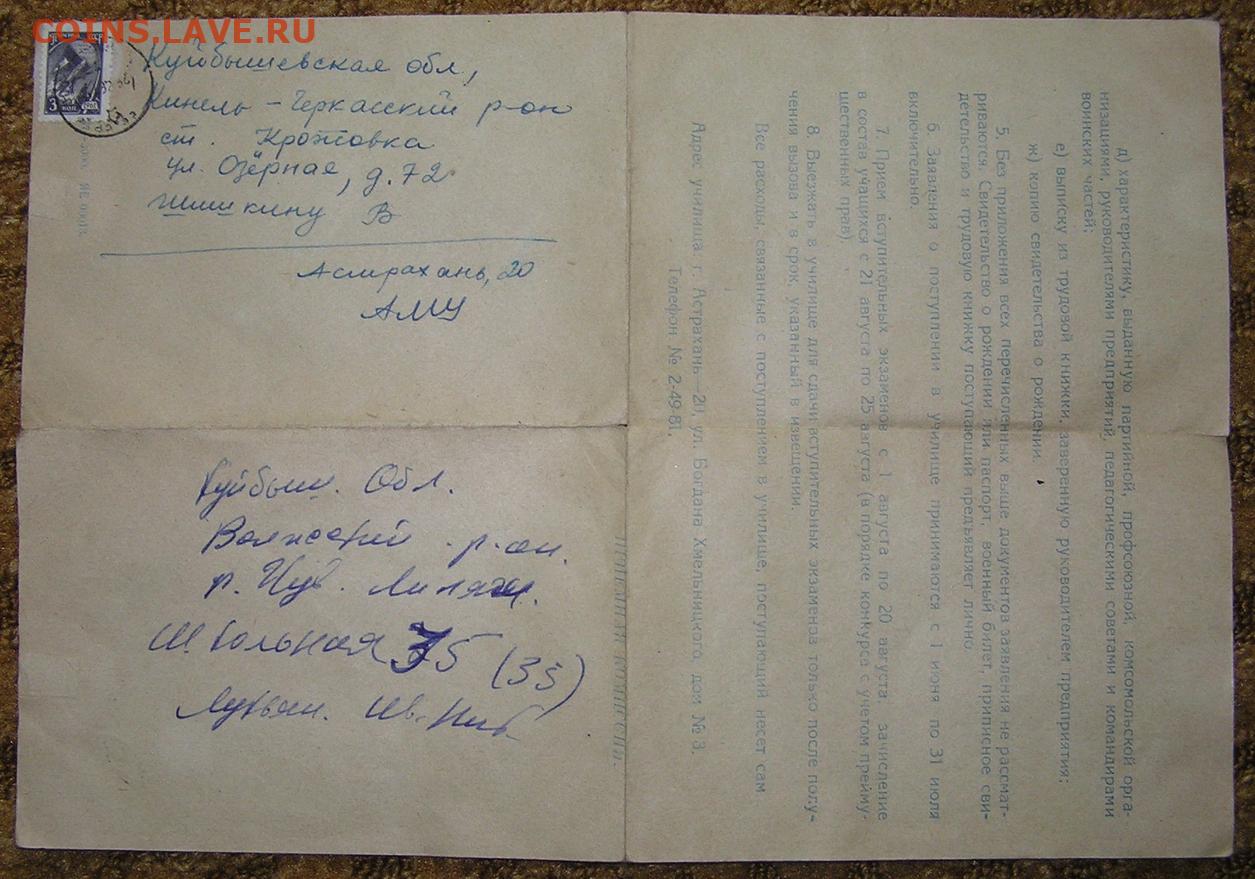 COINS.LAVE.RU
Куйбышевская обл,
Кинель-Черкасский р-он
ст. Кротовка
ул. Озёрная, д. 72
Шишкину В
Астрахань, 20
АМУ
Куйбыш. Обл.
Волжский р-он.
Школьная 35 (33)
ПРИЕМНАЯ КОМИССИЯ.
д) характеристику, выданную партийной, профсоюзной, комсомольской орга-
низациями, руководителями предприятий, педагогическими советами и командирами
воинских частей;
е) выписку из трудовой книжки, заверенную руководителем предприятия;
ж) копию свидетельства о рождении.
5. Без приложения всех перечисленных выше документов заявления не рассмат-
риваются. Свидетельство о рождении или паспорт, военный билет, приписное сви-
детельство и трудовую книжку поступающий предъявляет лично.
6. Заявления о поступлении в училище принимаются с 1 июня по 31 июля
включительно.
7. Прием вступительных экзаменов с 1 августа по 20 августа, зачисление
в состав учащихся с 21 августа по 25 августа (в порядке конкурса с учетом преиму-
щественных прав).
8. Выезжать в училище для сдачи вступительных экзаменов только после полу-
чения вызова и в срок, указанный в извещении.
Все расходы, связанные с поступлением в училище, поступающий несет сам.
Адрес училища г. Астрахань—20, ул. Богдана Хмельницкого, дом № 3.
Телефон № 2-49-81.